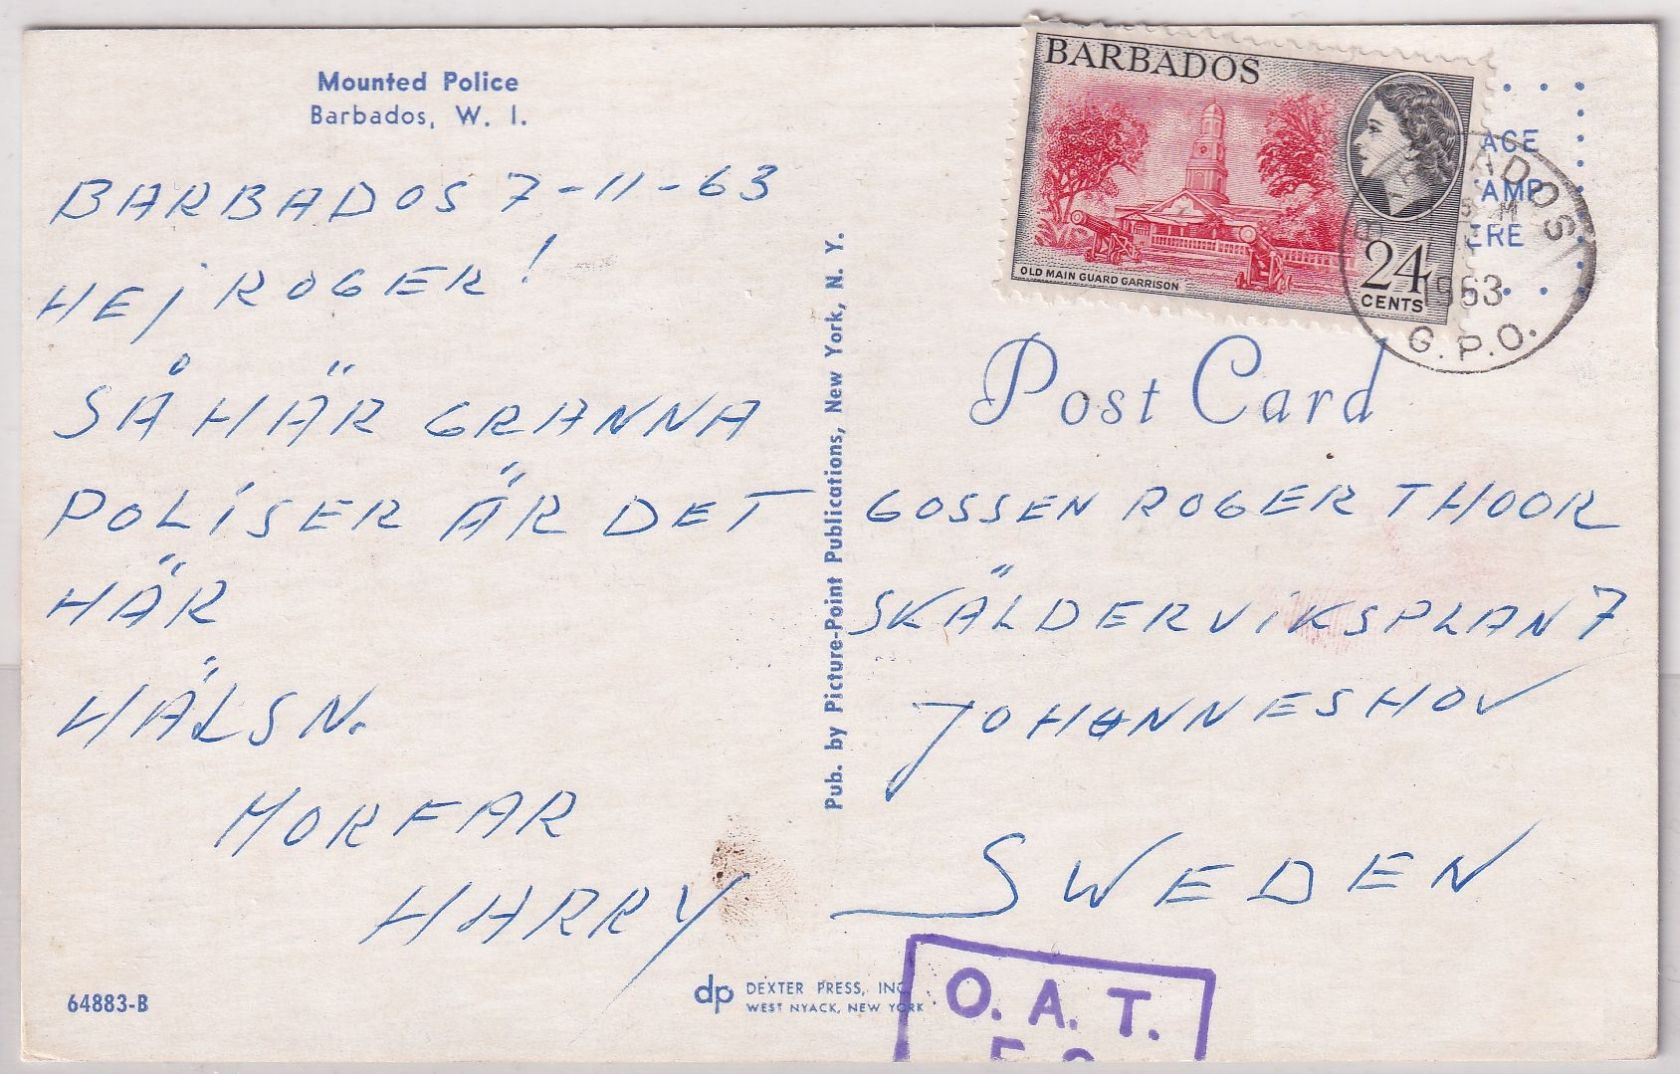 Mounted Police
Barbados, W. I.
BARBADOS 7-11-63
HEJ ROGER!
SÅ HÄR GRANNA
POLISER ÄR DET
HÄR
HÄLSN.
MORFAR
HARRY
64883-B
Pub. by Picture-Point Publications, New York, N. Y.
dp DEXTER PRESS, INC.
WEST NYACK, NEW YORK
BARBADOS
OLD MAIN GUARD GARRISON
24
CENTS
ACE
AMP
ERE
BARBADOS
1963
G.P.O.
Post Card
GOSSEN ROGER THOOR
SKÄLDERVIKSPLAN 7
JOHANNESHOV
SWEDEN
O. A. T.